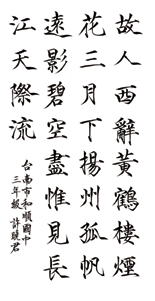 故人西辭黃鶴樓煙
花三月下揚州孤帆
遠影碧空盡惟見長
江天際流
台南市和順國中
三年級